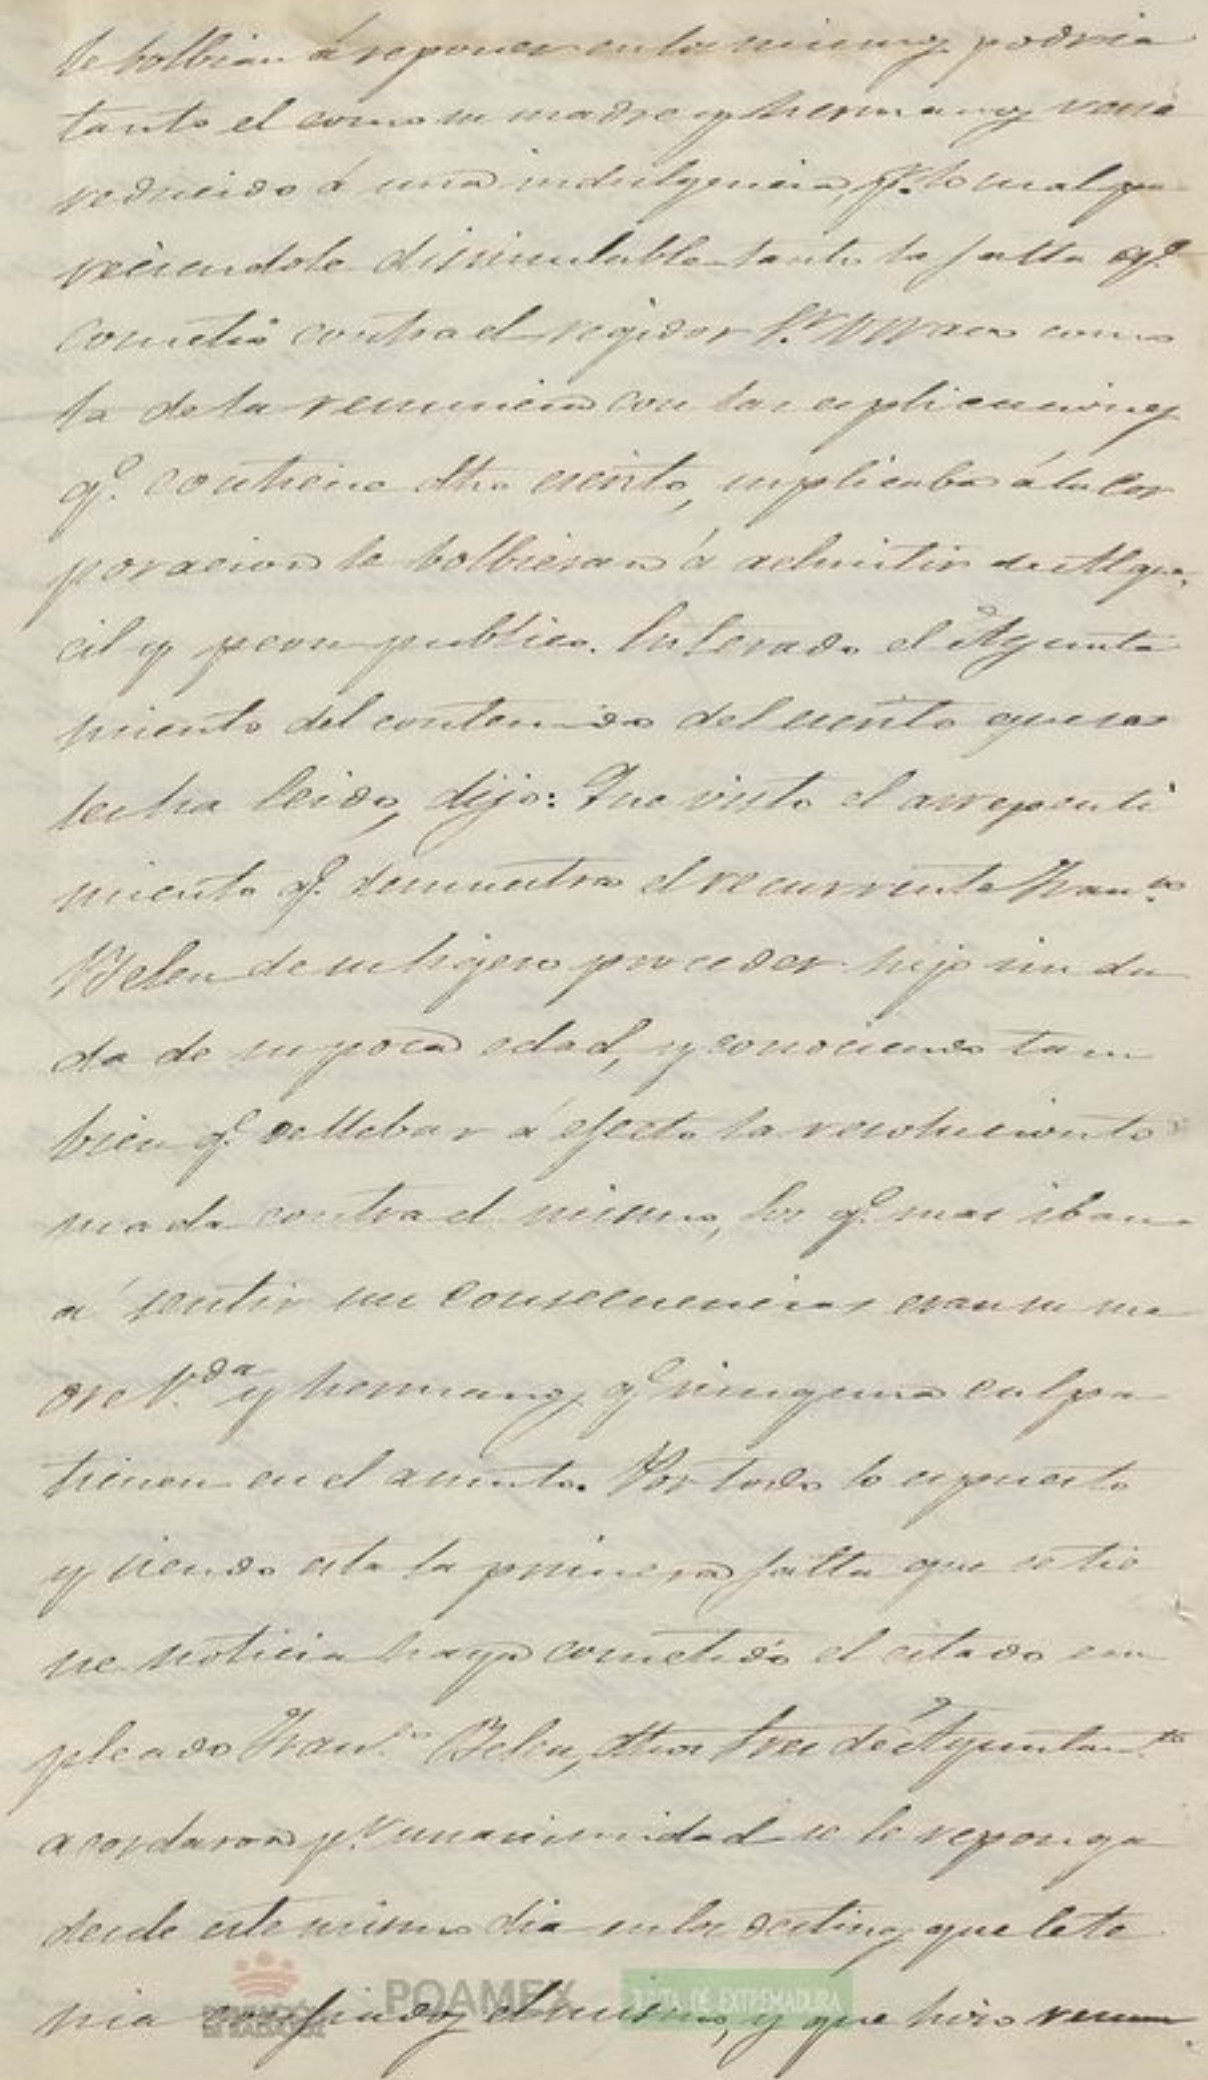 le bolbian á reponer en los mismos podria
tanto el como su madre y hermanos verse
reducido á una indulgencia, pr. lo cual pa
reciendole disimulable tanto la falta qe.
cometió contra el regidor Sr. como
la de la renuncia con las esplicaciones
qe. contiene dho escrito, suplicaba á la cor
poracion le bolbieran á admitir de Algua
cil y peon publico. Enterado el Ayunta
miento del contenido del escrito que se
les ha leido, dijo: Que visto el arrepenti
miento qe. demuestra el recurrente Franco.
Belen de su ligero proceder hijo sin du
da de su poca edad, y conociendo tam
bien qe. de llebar á efecto la resolucion to
mada contra el mismo, los qe. mas iban
á sentir sus consecuencias eran su ma
dre V.da y hermanos qe. ninguna culpa
tienen en el asunto. Por todo lo espuesto
y siendo esta la primera falta que se tie
ne noticia haya cometido el citado em
pleado Franco. Belen, dhos Sres de Ayuntamto
acordaron pr. unanimidad se le reponga
desde este mismo dia en los destinos que le te
nia confiados el mismo, y que hizo renun
DIPUTACIÓN DE BADAJOZ POAMEX JUNTA DE EXTREMADURA